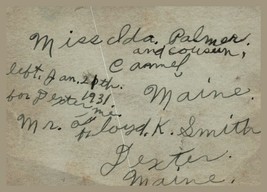 Miss Ida. Palmer.
and cousin,
Carmel,
left, Jan. 21th.
Maine.
for Dexter
1931
me.
Mr. Floyd. K. Smith
Dexter.
Maine.